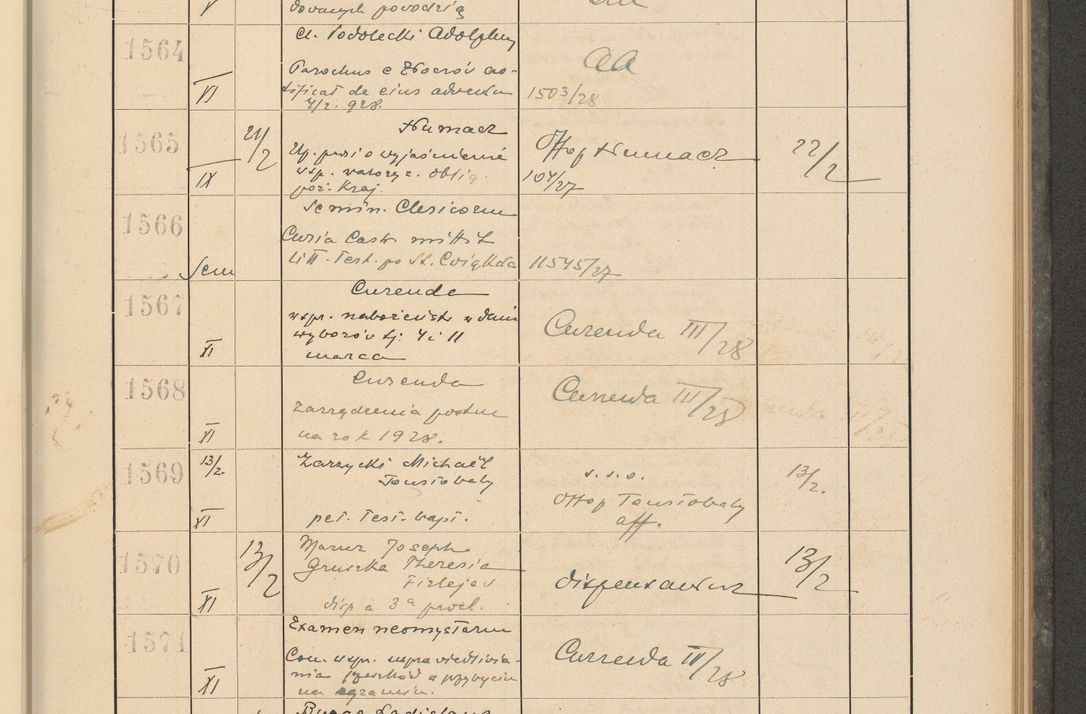 V
dowanych powodzią
1564
VI
cl. Podolecki Adolphus
Parochus e Zborów no-
tificat de eius adventu
4/2. 928.
AA
1503/28
1565
IX
21/2
Humacz
Up. prosi o wyjaśnienie
wsp. waloryz. oblig.
poż. Kraj.
Offop Humacz
104/27
22/2
1566
Sem
Semin. Clericorum
Curia Castr mittit
litt. Test. po St.
11545/27
1567
XI
Curenda
wspr. nabożeństw w dniu
wyborów tj. 4 i 11
marca
Currenda III/28
1568
XI
Curenda
Zarządzenia postne
na rok 1928.
Currenda III/28
1569
13/2.
XI
Zarzycki Michaël
Toustobaby
pet. Test. bapt.
s.s.o.
Offop Toustobaby
aff.
13/2.
1570
XI
13/2
Mazur Joseph
Gruszka Theresia
Firlejów
disp a 3a procl.
dispensavimus
13/2
1571
XI
Examen neomystarum
Con. wspr. usprawiedliwia-
nia wyjazdów a przybyciu
na egzamin.
Currenda III/28